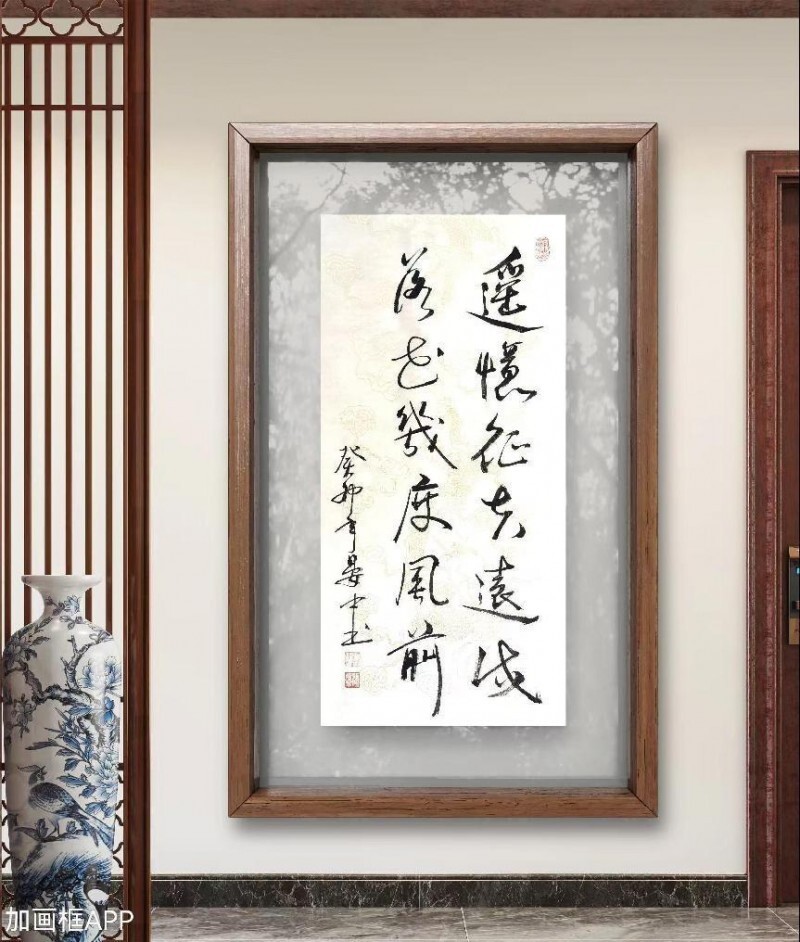 遥憶征夫遠戍
落花幾度風前
癸卯年晏中书
加画框APP